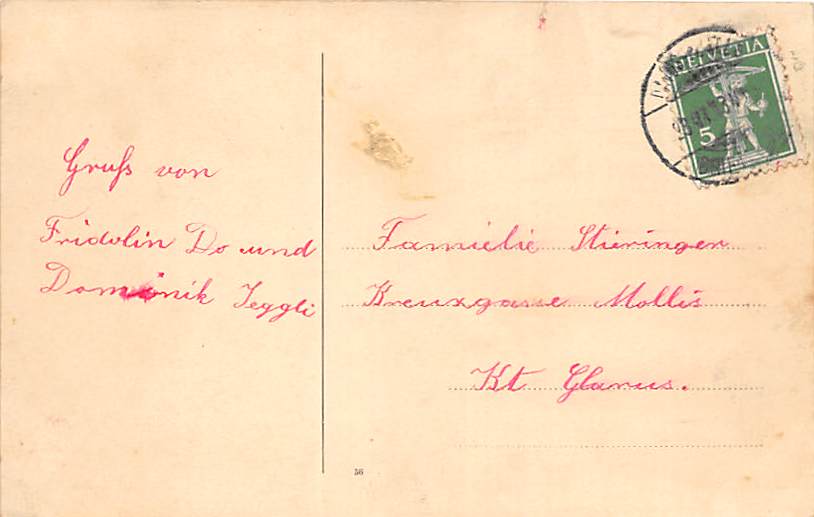 Gruß von
Fridolin Do und
Dominik Jeggli
HELVETIA
5
Familie Stieringer
Kreuzgasse Mollis
Kt Glarus.
56